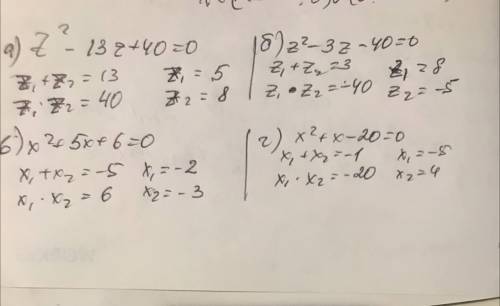 а) z² - 13z + 40 = 0
z₁ + z₂ = 13 z₁ = 5
z₁ · z₂ = 40 z₂ = 8
б) z² - 3z - 40 = 0
z₁ + z₂ = 3 z₁ = 8
z₁ · z₂ = -40 z₂ = -5
в) x² + 5x + 6 = 0
x₁ + x₂ = -5 x₁ = -2
x₁ · x₂ = 6 x₂ = -3
г) x² + x - 20 = 0
x₁ + x₂ = -1 x₁ = -5
x₁ · x₂ = -20 x₂ = 4